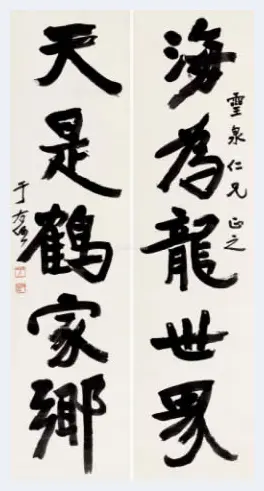 海為龍世界
靈泉仁兄正之
天是鶴家鄉
于右任